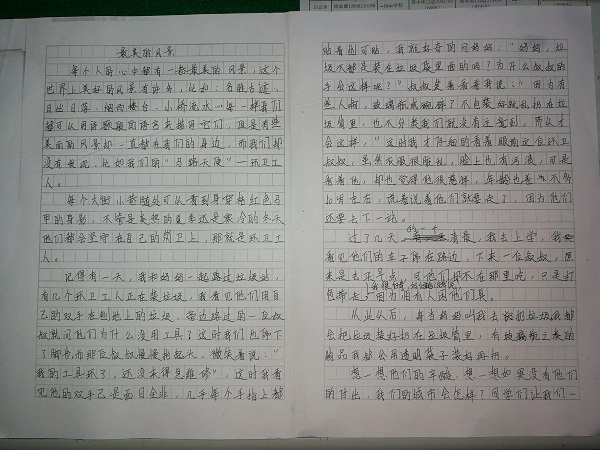 最美的风景
每个人的心中都有一抹最美的风景，这个
世界上美好的风景有许多，比如：名胜古迹、
日出日落、烟雨楼台、小桥流水…每一样我们
都可以用诗歌般的语言来描写它们，但是有些
美丽的风景却一直都在们的身边，而我们却
没有发现，比如我们的"马路天使"一环卫工
人。
每个大街小巷随处可以看到身穿橙红色马
甲的身影，不管是炎热的夏季还是寒冷的冬天
他们都会坚守在自己的岗卫上，那就是环卫工
人。
记得有一天，我和妈妈一起路过垃圾站，
有几个环卫工人正在装垃圾，我看见他们用自
己的双手在刨地上的垃圾，旁边路过的一位叔
叔就问他们为什么没用工具？这时我们也停下
了脚步，而那位叔叔慢慢抬起头，微笑着说："
我的工具坏了，还没来得急维修"，这时我看
见他的双手已是面目全非，几乎每个手指上都
贴着创可贴，我就好奇的问妈妈："妈妈，垃
圾不都是装在垃圾袋里面的吗？为什么叔叔的
手会这样呢？"叔叔笑着看着我说："因为有
些人啊，玻璃瓶或碗碎了不包装好就乱扔在垃
圾筒里，也不分类我们就没有注意到，所以才
会这样，"这时我才仔细的看着眼前这位环卫
叔叔，虽然衣服很脏乱，脸上也有污渍，可是
看着他，却也觉得他很慈祥，年龄也差不多
60岁左右，说着说着他们就要走了，因为他们
还要去下一站。
过了几天的一个清晨，我去上学，我
看见他们的车子停在路边，下来一位叔叔，原
来是去买早点，可他们却不在那里吃，只是打
包带走，因为怕有人闲他们臭。
从此以后，每当妈妈叫我去扔垃圾我都
会把垃圾装好扔在垃圾筒里，有玻璃瓶之类的
物品我都会用透明袋子装好再扔。
想一想他们的辛酸，想一想如果没有他们
的付出，我们的城市会怎样？同学们让我们一